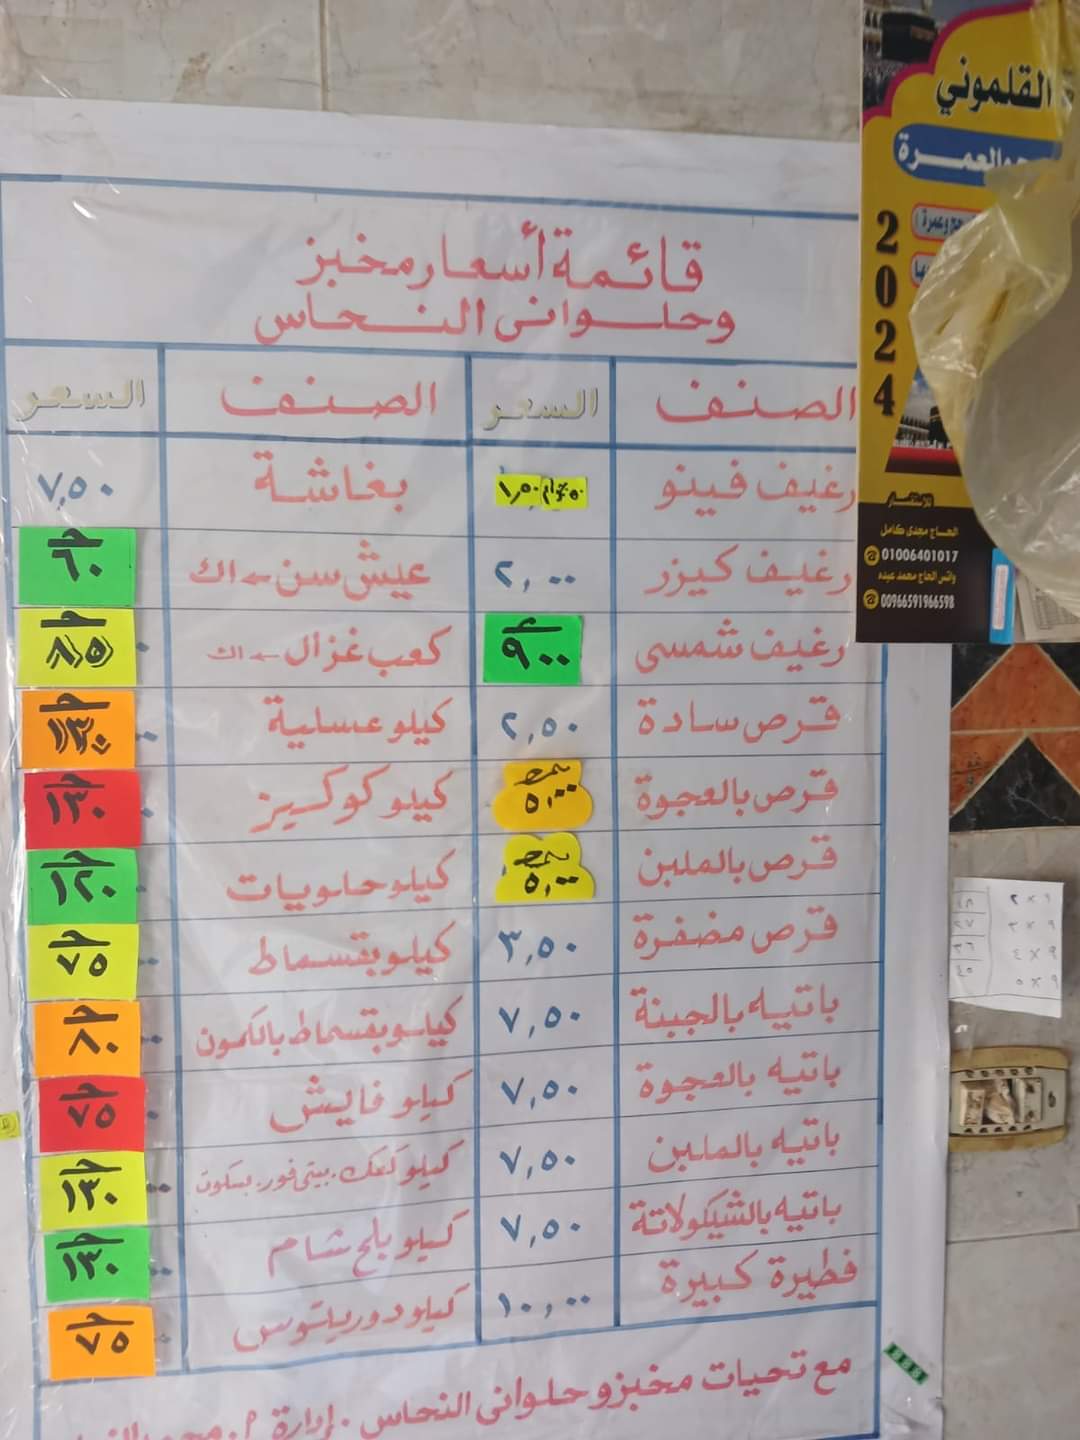 قائمة أسعار مخبز
وحلوانى النحاس
الصنف السعر الصنف السعر
رغيف فينو ١,٥٠ ٥٠ جرام بغاشة ٧,٥٠
رغيف كيزر ٢,٠٠ عيش سن ← ١ك ٦٠
رغيف شمسى ٩٠٠ كعب غزال ← ١ك ٨٥
قرص سادة ٢,٥٠ كيلو عسلية ١٣٠
قرص بالعجوة ٥,٠٠ كيلو كوكيز ١٣٠
قرص بالملبن ٥,٠٠ كيلو حلويات ١٢٠
قرص مضفرة ٣,٥٠ كيلو بقسماط ٧٥
باتيه بالجبنة ٧,٥٠ كيلو بقسماط بالكمون ٨٠
باتيه بالعجوة ٧,٥٠ كيلو فايش ٧٥
باتيه بالملبن ٧,٥٠ كيلو كعك . بيتى فور . بسكوت ١٣٠
باتيه بالشيكولاتة ٧,٥٠ كيلو بلح شام ١٣٠
فطيرة كبيرة ١٠,٠٠ كيلو دوريتوس ٧٥
مع تحيات مخبز وحلوانى النحاس . إدارة م.
القلموني
والعمرة
2024
للاستفسار
الحاج مجدى كامل
01006401017
واتس الحاج محمد عبده
00966591966598